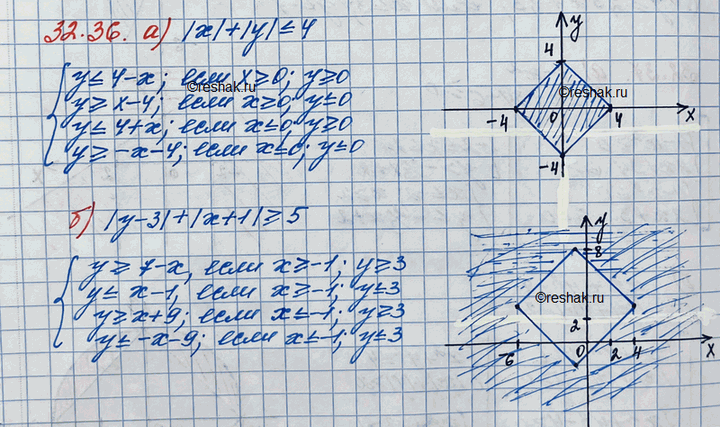 32.36. а) |x|+|y| ≤ 4
y ≤ 4-x; если x ≥ 0; y ≥ 0
y ≥ x-4; если x ≥ 0; y ≤ 0
y ≤ 4+x; если x ≤ 0; y ≥ 0
y ≥ -x-4; если x ≤ 0; y ≤ 0
©reshak.ru
y
4
©reshak.ru
-4
0
4
x
-4
б) |y-3|+|x+1| ≥ 5
y ≥ 7-x, если x ≥ -1; y ≥ 3
y ≤ x-1, если x ≥ -1; y ≤ 3
y ≥ x+9; если x ≤ -1; y ≥ 3
y ≤ -x-9; если x ≤ -1; y ≤ 3
y
8
©reshak.ru
2
-6
0
2
4
x